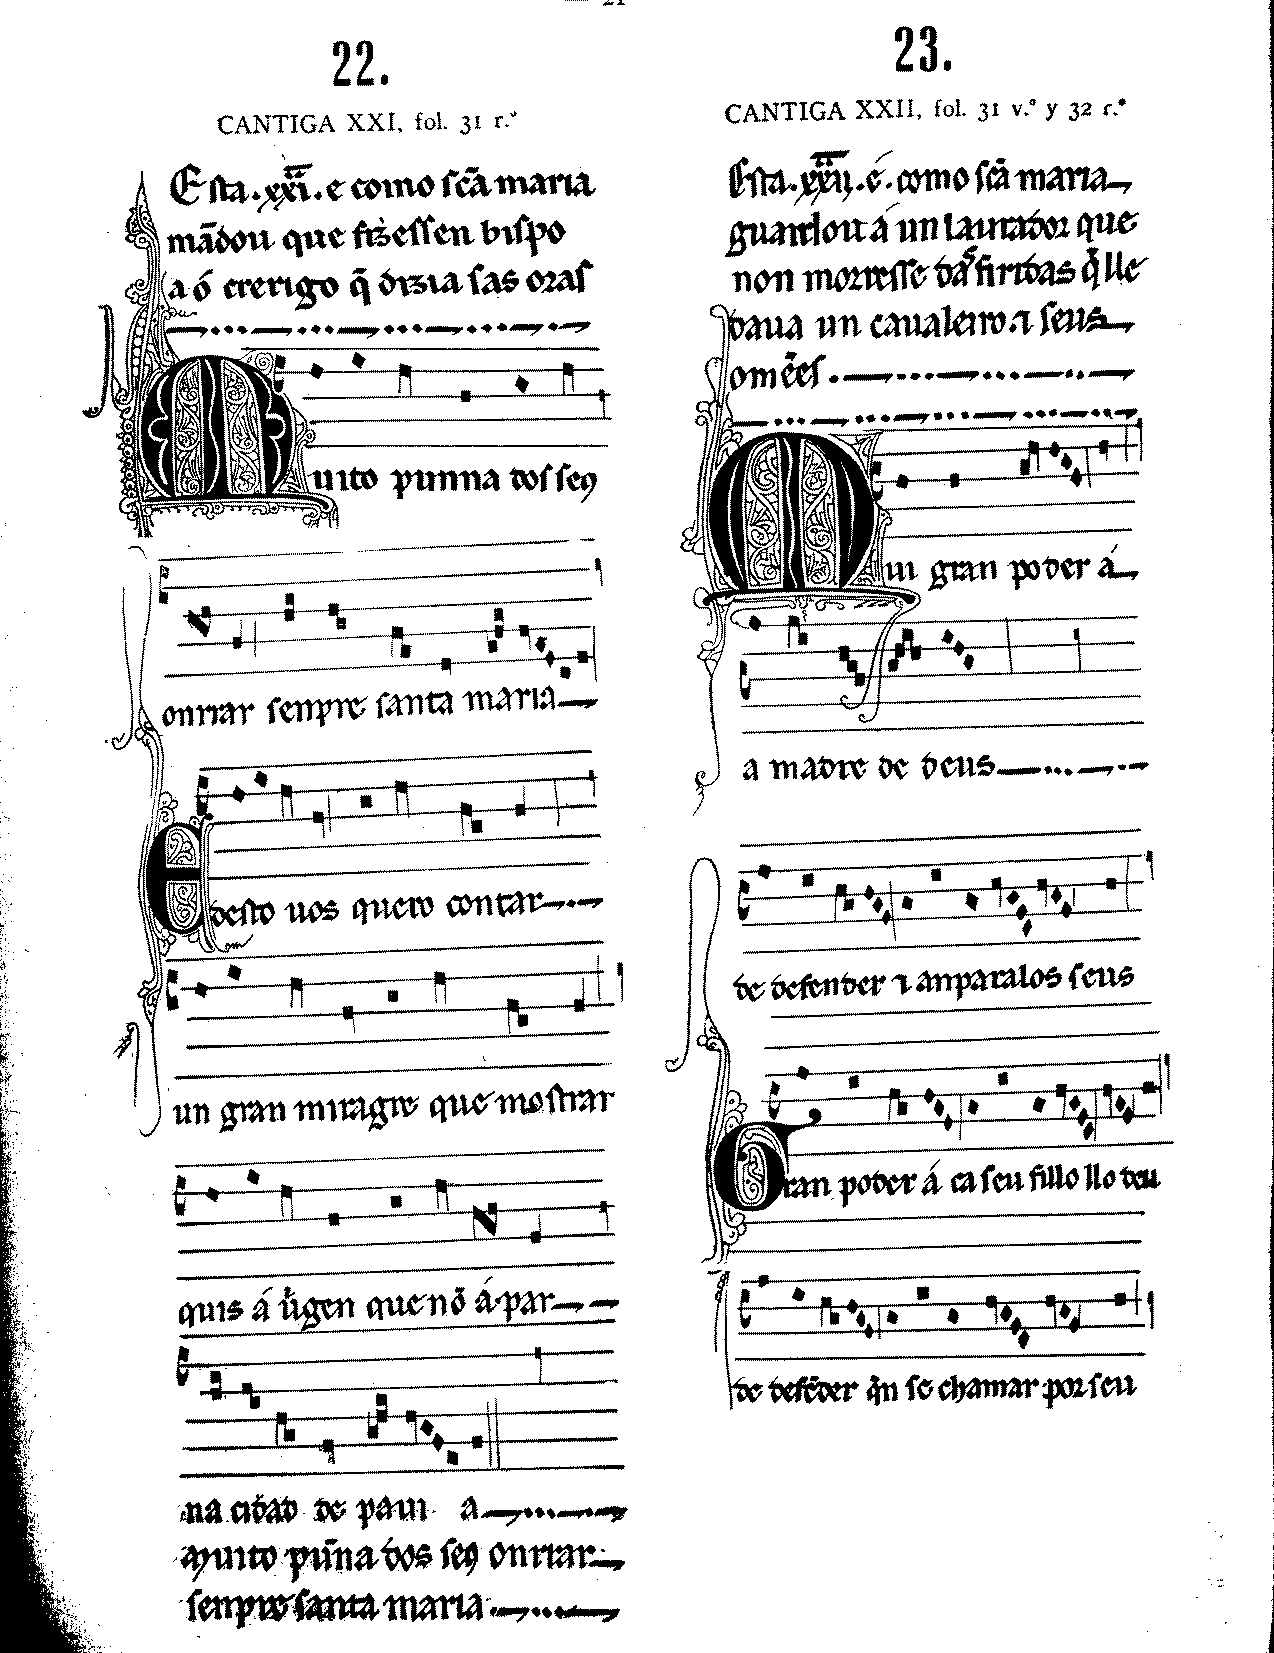 22.
CANTIGA XXI, fol. 31 r.º
Esta .xxi. e como scã maria
mãdou que fizessen bispo
a ó crerigo q̃ dizia sas oras
Muito punna dos seꝯ
onrrar senpre santa maria
E desto uos quero contar
un gran miragre que mostrar
quis á uigen que nõ á par
na cidad de paui a
Muito pũna dos seꝯ onrrar
senpre santa maria
23.
CANTIGA XXII, fol. 31 v.º y 32 r.º
Esta .xxij. é como scã maria
guardou á un laurador que
non morresse das firidas q̃ lle
daua un caualeiro ⁊ seus
omẽes.
Mui gran poder á
a madre de deus
de defender ⁊ anparalos seus
Gran poder á ca seu fillo llo deu
de defẽder q̃n se chamar por seu